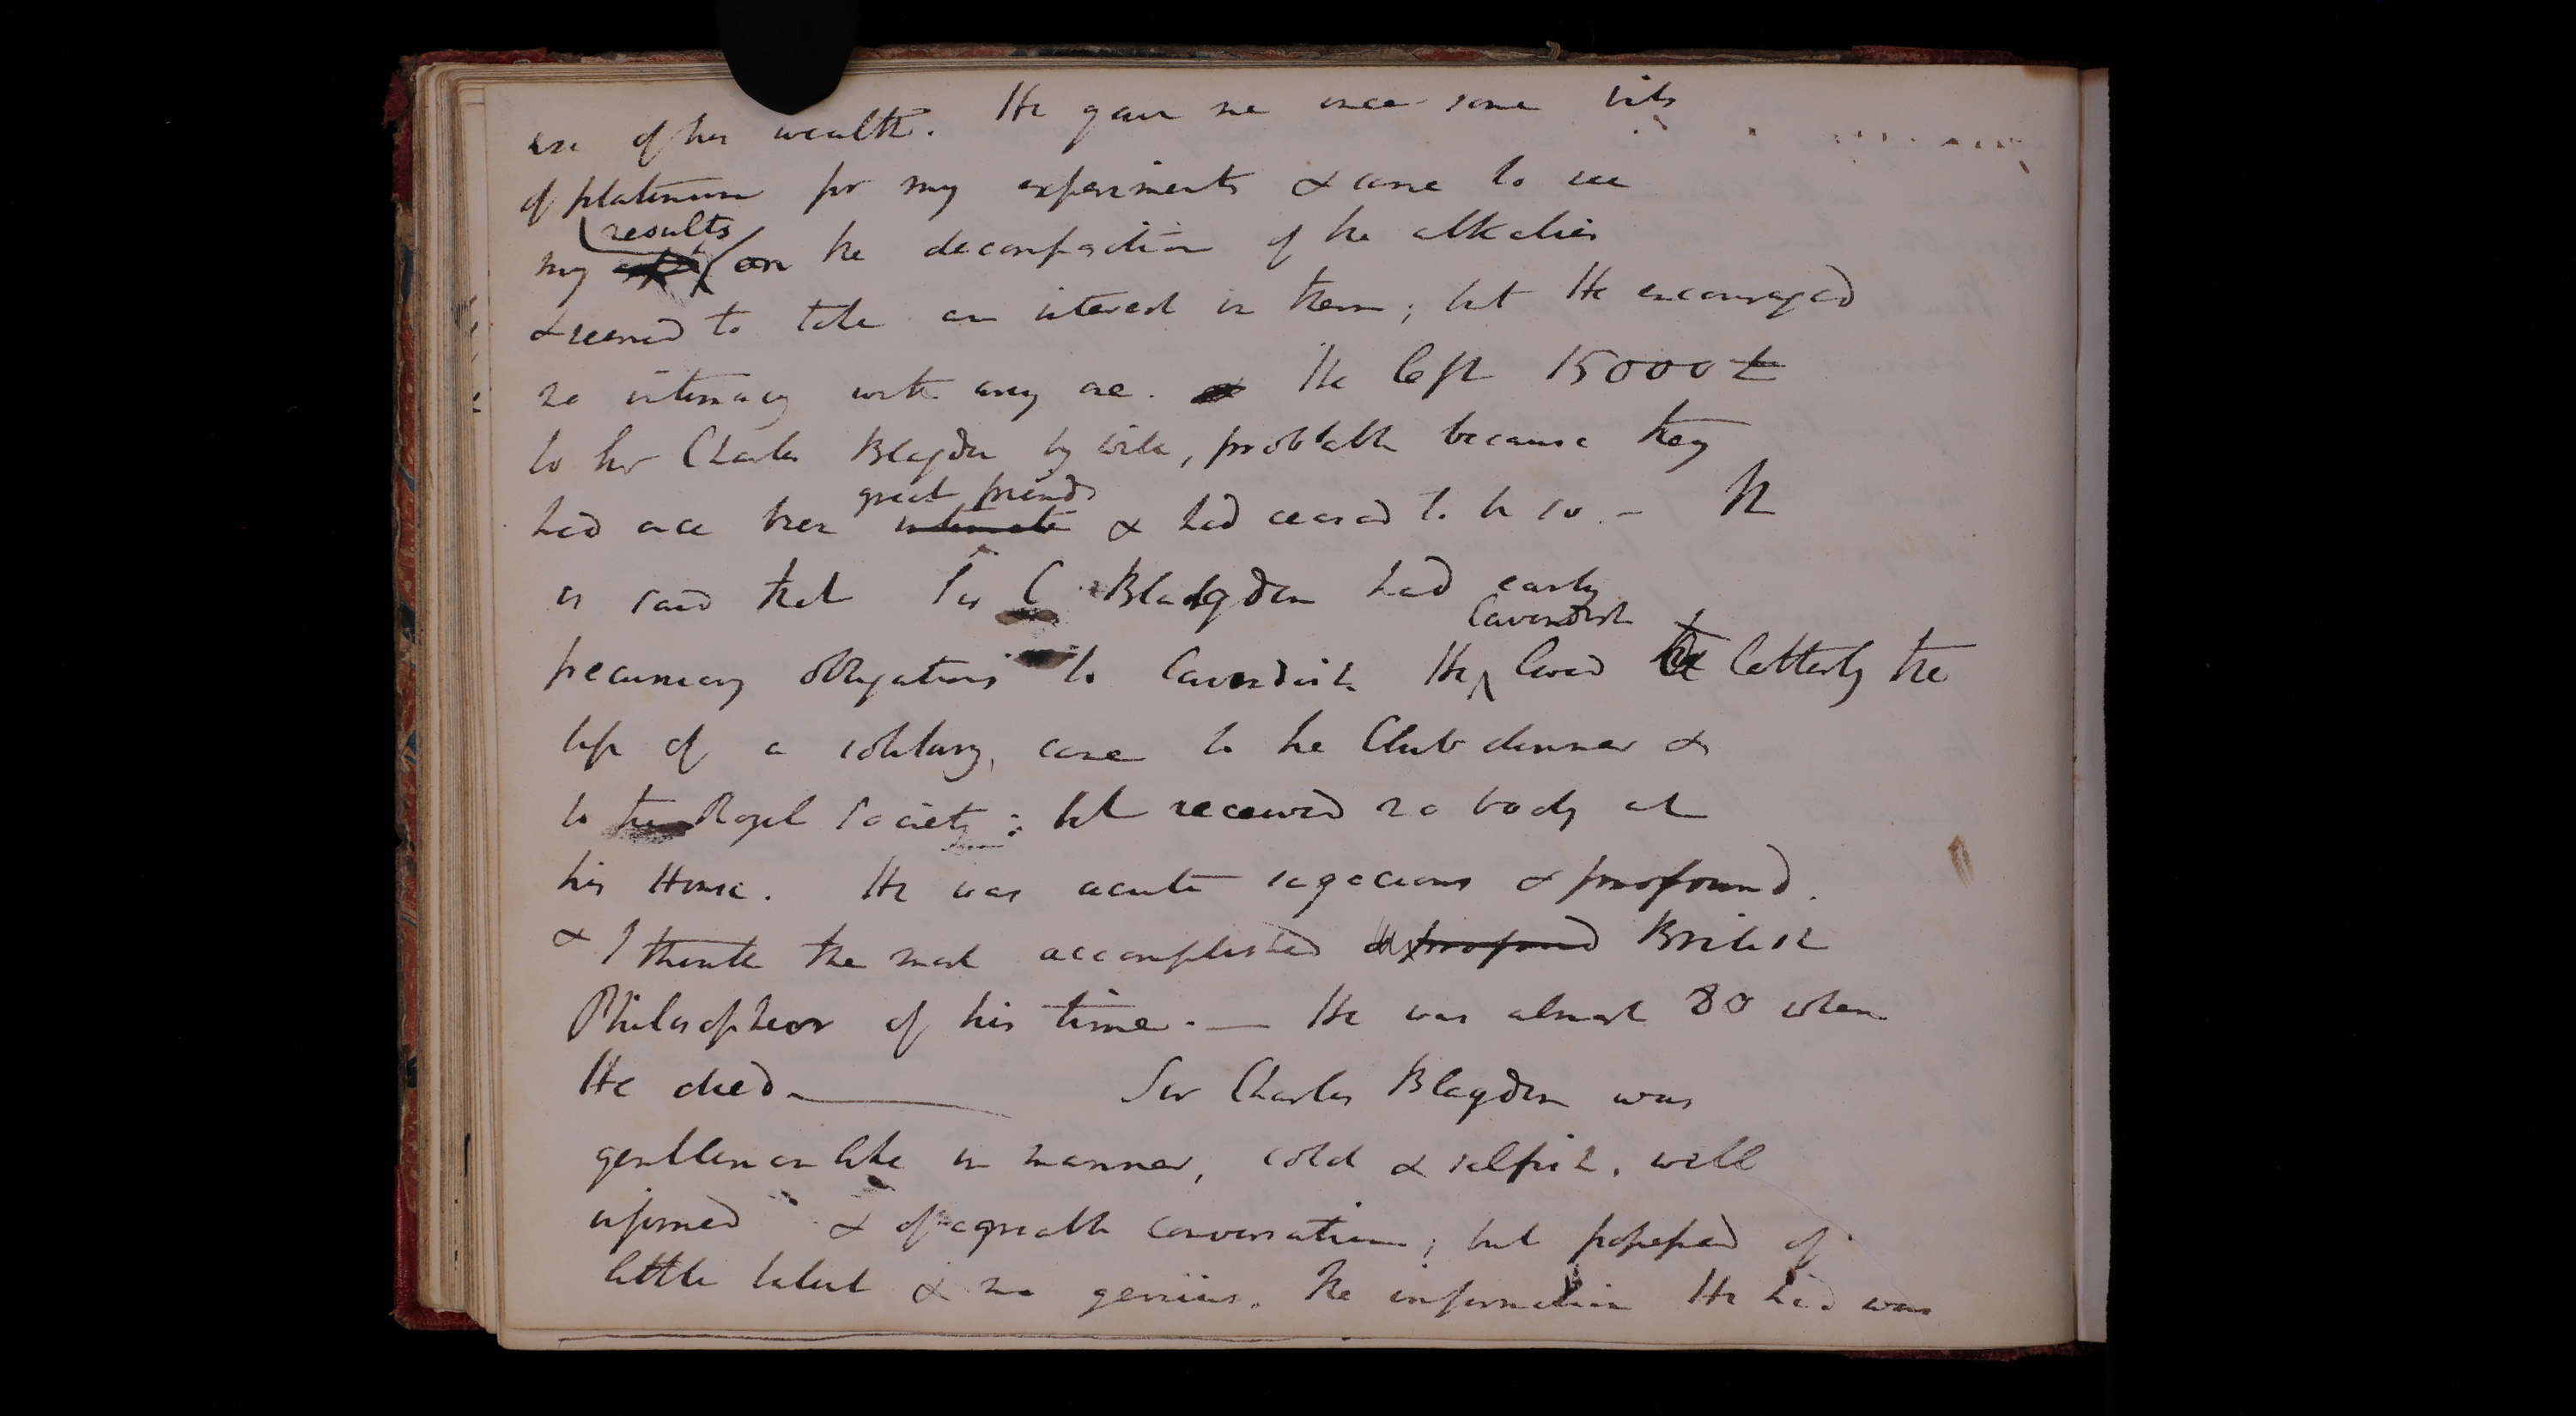 use of his wealth. He gave me once some bits
of platinum for my experiments & came to see
my results on the decomposition of the alkalies
& seemed to take an interest in them; but He encouraged
no intimacy with any one. He left 15000£
to Sir Charles Blagden by will, probable because they
had once been intimate great friends & had ceased to be so. – It
is said that Sir C Blagden had early
pecuniary obligations to Cavendish He Cavendish lived latterly the
life of a solitary, came to the Club dinner &
to the Royal Society: but received no body at
his House. He was acute sagacious & profound.
& I think the most accomplished & profound British
Philosopher of his time. — He was almost 80 when
He died — Sir Charles Blagden was
gentleman like in manner, cold & selfish, well
informed & of agreable conversation; but possessed of
little talent & no genius. The information He had was